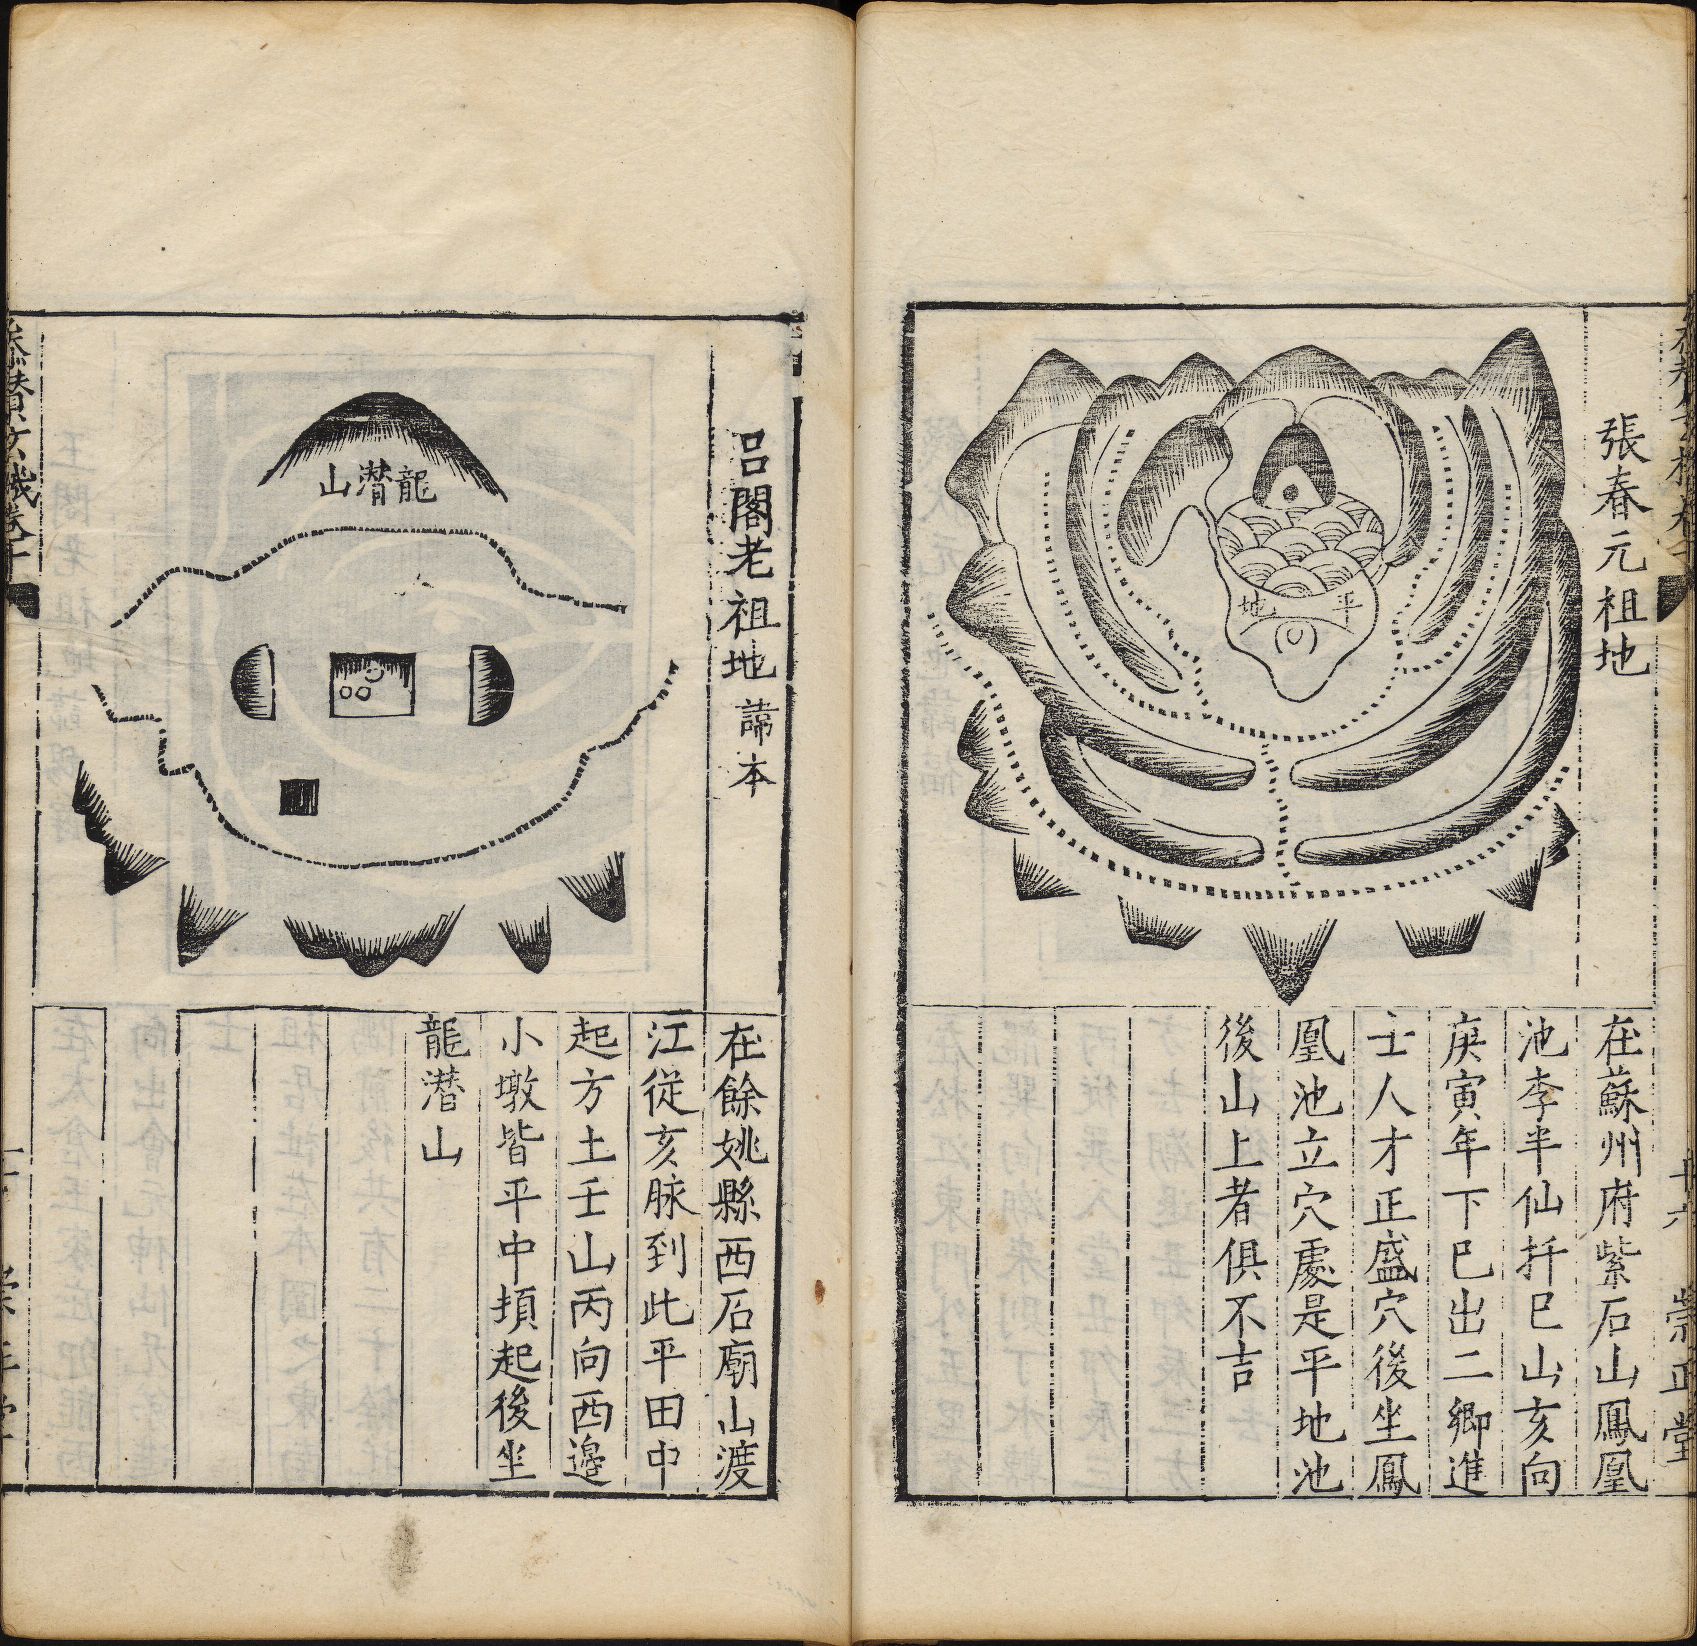 張春元祖地
平地
在蘇州府紫石山鳳凰
池李半仙扦巳山亥向
庚寅年下巳出二鄉進
士人才正盛穴後坐鳳
凰池立穴處是平地池
後山上者俱不吉
十六
崇正堂
呂閣老祖地 諱本
龍潜山
在餘姚縣西石廟山渡
江從亥脉到此平田中
起方土壬山丙向西邉
小墩皆平中墳起後坐
龍潜山